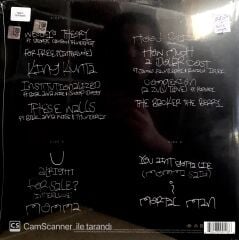 Wesley's Theory
ft George Clinton & Thundercat
For Free? (Interlude)
King Kunta
Institutionalized
ft Bilal, Anna Wise & Snoop Dogg
These Walls
ft Bilal, Anna Wise & Thundercat
Hood Politics
How Much
a Dollar Cost
ft James Fauntleroy & Ronald Isley
Complexion
(A Zulu Love) ft Rapsody
The Blacker the Berry
U
Alright
For Sale?
(Interlude)
Momma
You Ain't Gotta Lie
(Momma Said)
i
Mortal Man
CS CamScanner ile tarandı